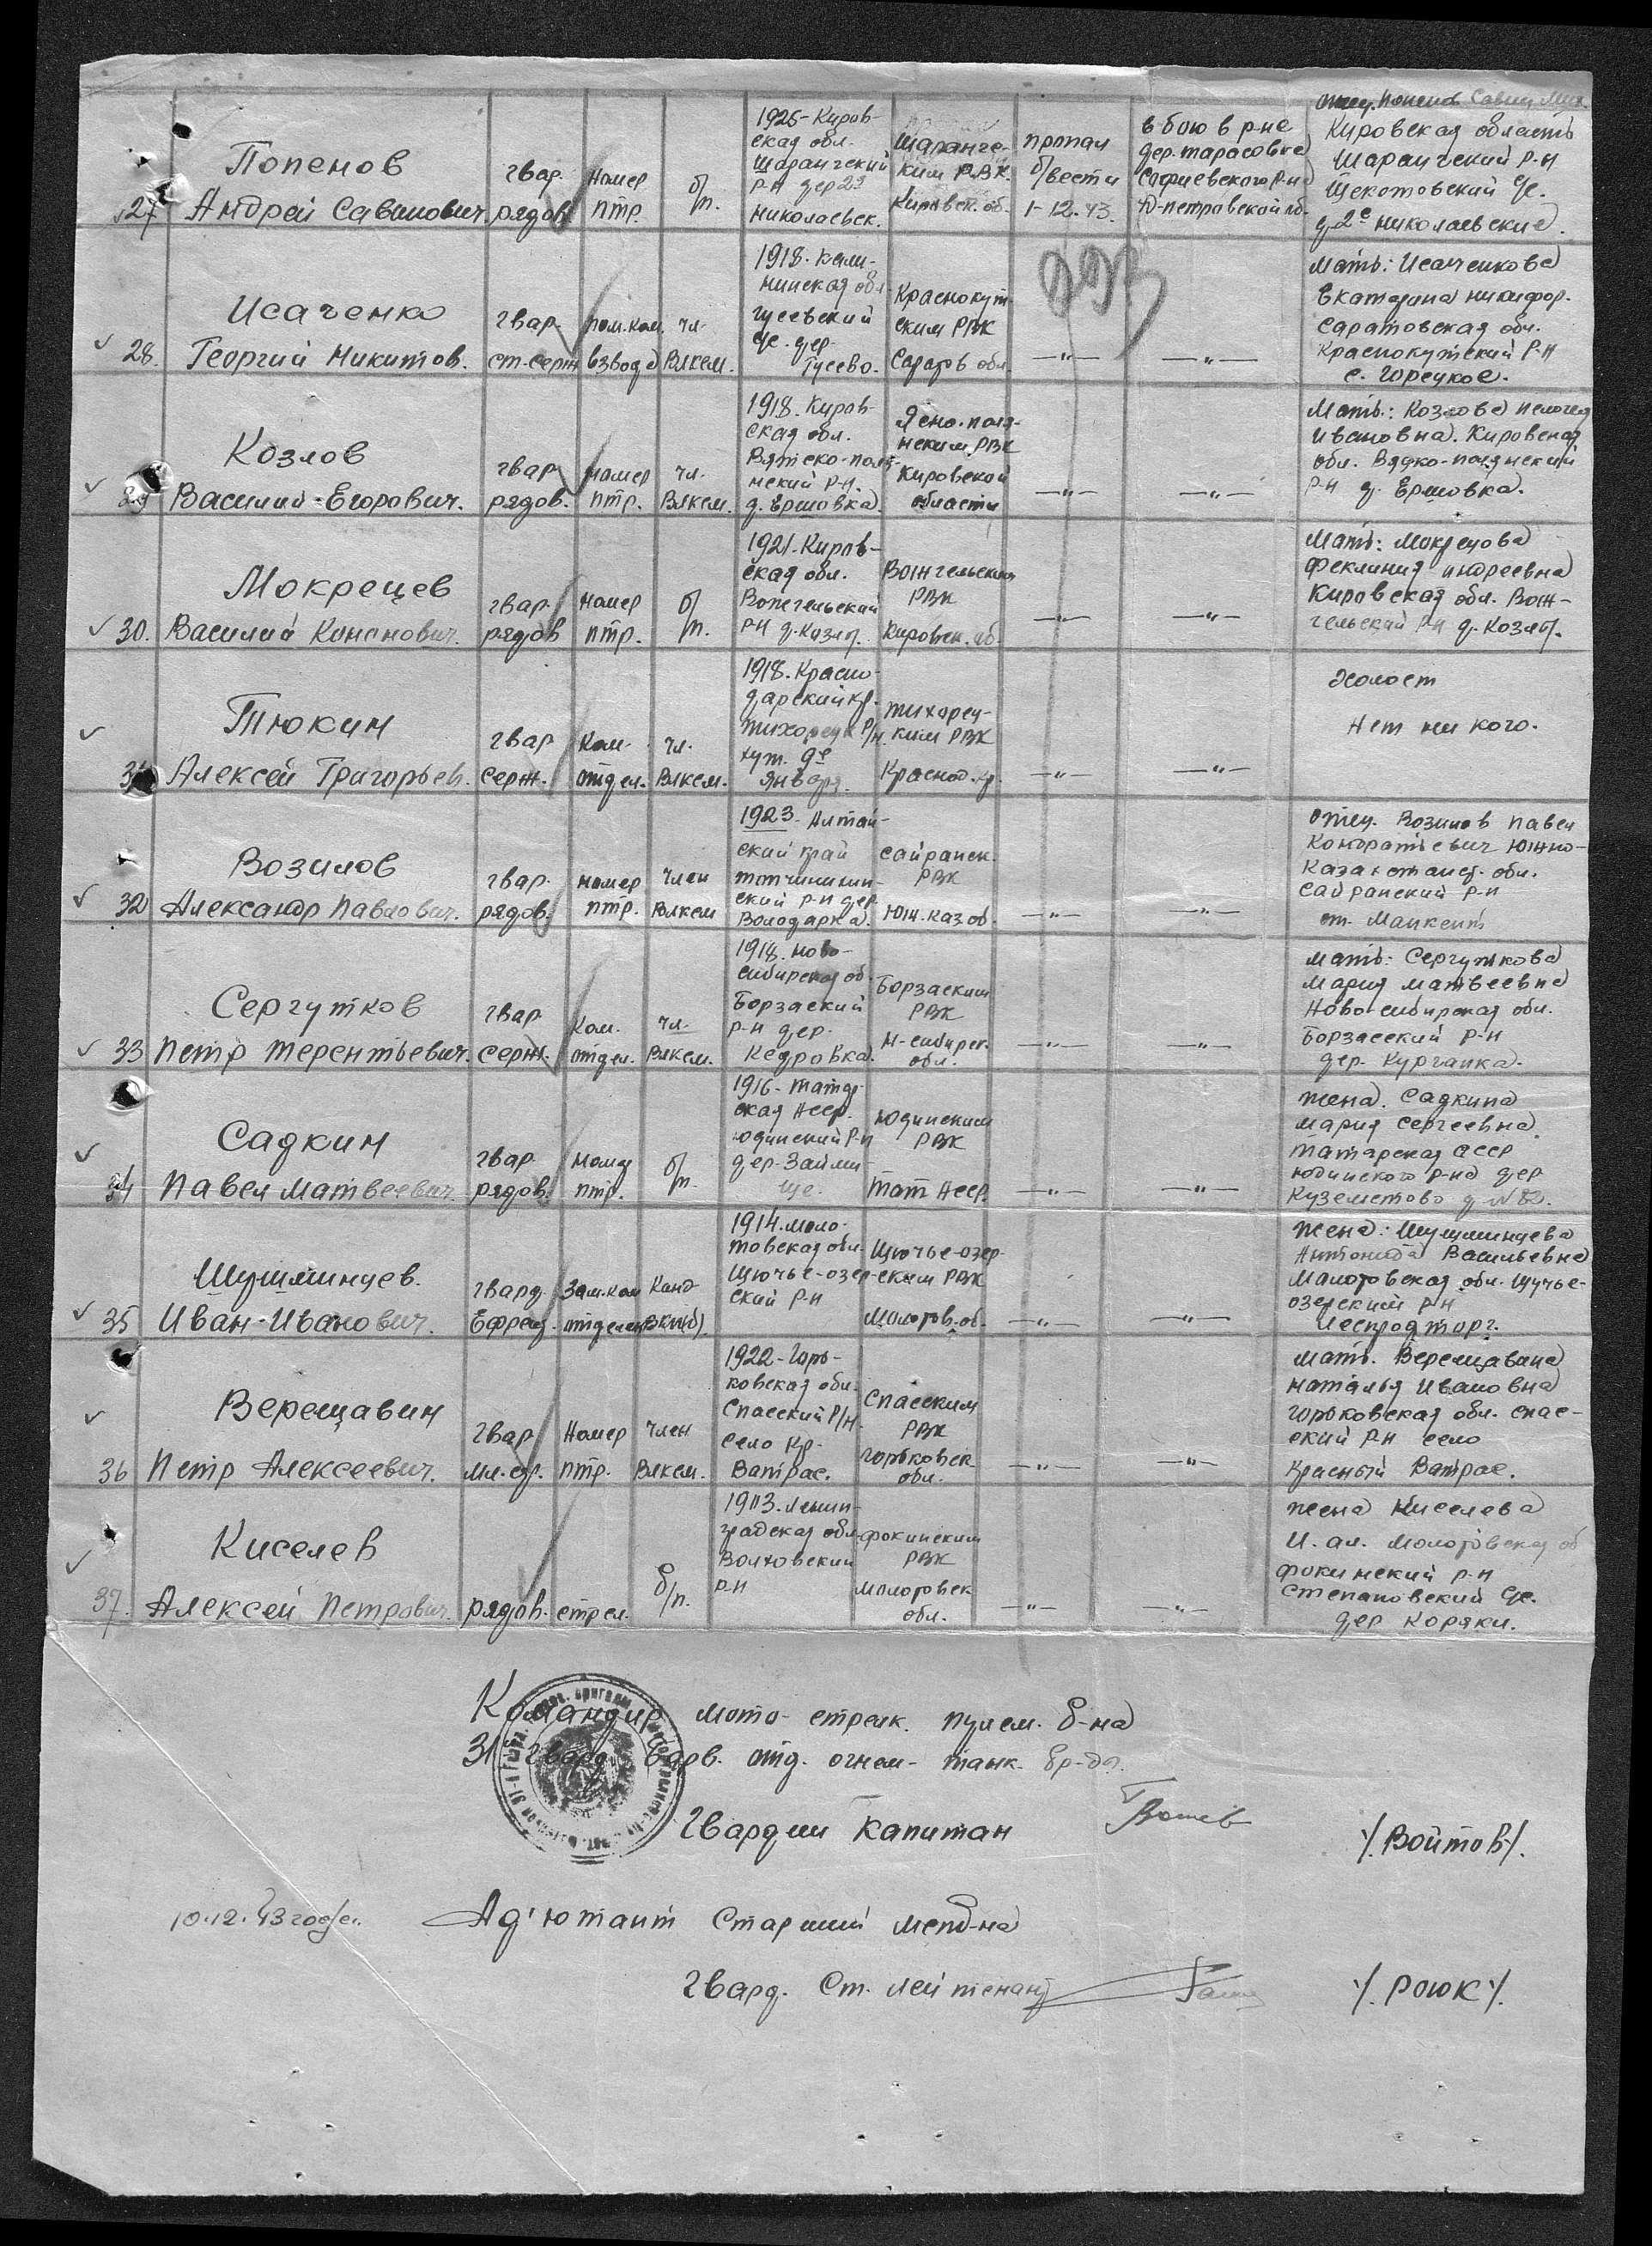 27 Попенов
Андрей Саванович
гвар. рядов.
Номер птр.
б/п.
1925- Киров-
ская обл.
Шарангский
р-н дер 2я
Николаевск.
Шаранге-
ким РВК.
Кировск. об.
пропал
б/вести
1-12.43.
в бою в р-не
дер. Тарасовка
Софиевского р-на
Д-петровской об.
отец. Попенов Савин Мих.
Кировская область
Шарангский р-н
Щекотовский с/с.
д. 2е Николаевские.
28. Исаченко
Георгий Никитов.
гвар. ст-серж
пом. ком. взвода
чл. Влксм.
1918. Кали-
нинская обл
Гусевский
с/с. дер.
Гусево.
Краснокут-
ским РВК
Саратов обл.
—„—
—„—
Мать: Исаченкова
Екатерина Никифор.
Саратовская обл.
Краснокутский р-н
с. Горецкое.
29 Козлов
Василий Егорович.
гвар. рядов.
Номер птр.
чл. Влксм.
1918. Киров-
ская обл.
Вятско-поля-
нский р-н.
д. Ершовка.
Ясно-поля-
нским РВК
Кировской
области
—„—
—„—
Мать: Козлова Пелагея
Ивановна. Кировская
обл. Вядко-полянский
р-н д. Ершовка.
30. Мокрецев
Василий Кононович.
гвар. рядов
номер птр.
б/п.
1921. Киров-
ская обл.
Вожгальский
р-н д. Козлы.
Вожгельским
РВК
Кировск. об.
—„—
—„—
Мать: Мокрецова
Феклиния Андреевна
Кировская обл. Вож-
гельский р-н д. Козлы.
31 Тюкин
Алексей Григорьев.
гвар. серж.
Ком. отдел.
чл. Влксм.
1918. Красно-
дарский кр.
Тихорецк. р/н.
хут. 9е
января.
Тихорец-
ким РВК
Краснод. кр.
—„—
—„—
Холост
Нет ни кого.
32 Возилов
Александр Павлович.
гвар. рядов.
номер птр.
член Влксм
1923. Алтай-
ский край
Топчихин-
ский р-н дер.
Володарка.
Сайрамск.
РВК
Юж. Каз об.
—„—
—„—
отец. Возилов Павел
Кондратьевич Южно-
Казахстанск. обл.
Сайрамский р-н
ст. Манкент
33 Сергутков
Петр Терентьевич.
гвар. серж.
Ком. отдел.
чл. Влксм.
1918. Ново-
сибирская об.
Борзаский
р-н дер.
Кедровка.
Борзаским
РВК
Н-сибирск.
обл.
—„—
—„—
Мать: Сергуткова
Мария Матвеевна
Ново-сибирская обл.
Борзасский р-н
дер. Курганка.
34 Садкин
Павел Матвеевич.
гвар. рядов.
Номер птр.
б/п.
1916- Татар-
ская Асср.
Юдинский р-н
дер. Займи-
ще.
Юдинским
РВК
Тат Асср.
—„—
—„—
жена. Садкина
Мария Сергеевна.
Татарская АССР
Юдинского р-на дер
Куземетово д. №82.
35 Шушминцев.
Иван Иванович.
гвард. Ефрей.
Зам. ком отделен
Канд ВКП(б).
1914. Моло-
товская обл.
Щючье-озер-
ский р-н
Щючье-озер-
ским РВК
Молотов. об.
—„—
—„—
жена: Шушминцева
Антонида Васильевна
Молотовская обл. Щучье-
озерский р-н
Леспродторг.
36 Верещавин
Петр Алексеевич.
гвар. мл. с-р.
Номер птр.
член Влксм.
1922- Горь-
ковская обл.
Спасский р/н.
село Кр.
Ватрас.
Спасским
РВК
Горьковск
обл.
—„—
—„—
мать. Верещавина
Наталья Ивановна
Горьковская обл. Спас-
ский р-н село
Красный Ватрас.
37. Киселев
Алексей Петрович.
рядов.
стрел.
б/п.
1903. Ленин-
градская обл.
Волховский
р-н
Фокинским
РВК
Молотовск
обл.
—„—
—„—
жена Киселева
И. ал. Молотовская об
Фокинский р-н
Степановский с/с.
дер Коряки.
993
Командир мото- стрелк. пулем. б-на
31 Гвард. Варв. отд. огнем- танк. бр-ды.
Гвардии капитан /. Войтов/.
10.12.43 года.
Ад'ютант Старший мспб-на
Гвард. Ст. лейтенант /. РОЮК/.